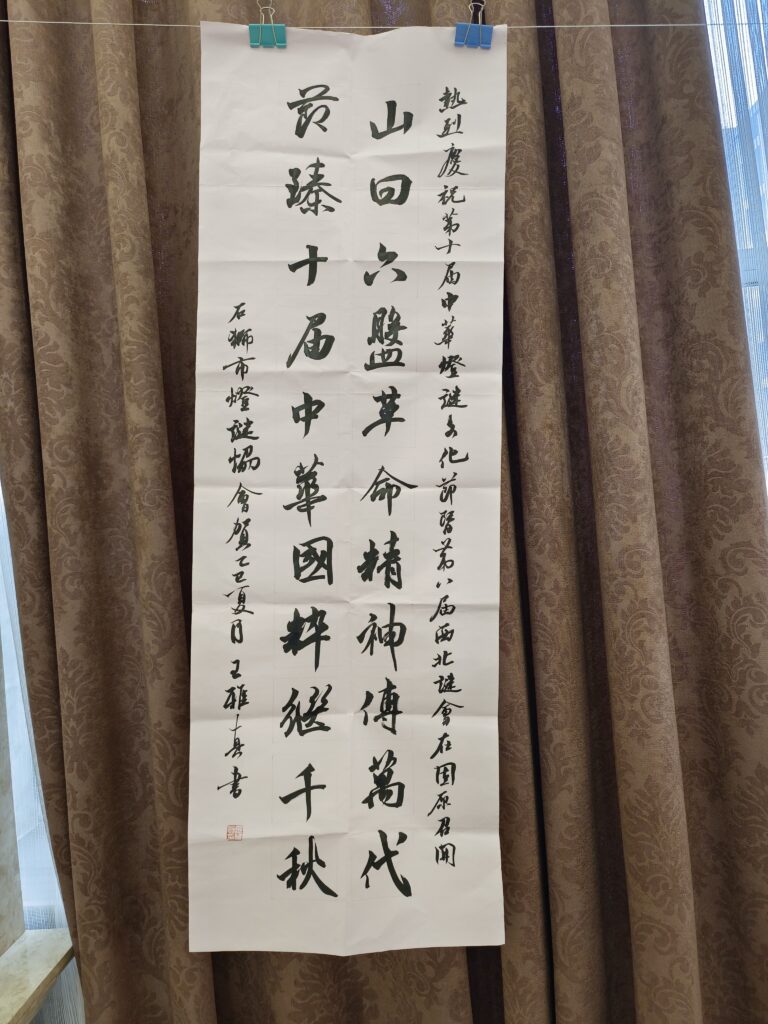 熱烈慶祝第十届中華燈謎文化節暨第八届西北謎會在固原召開
山回六盤革命精神傳萬代
節臻十届中華國粹繼千秋
石獅市燈謎協會賀乙巳夏月 王雅真書